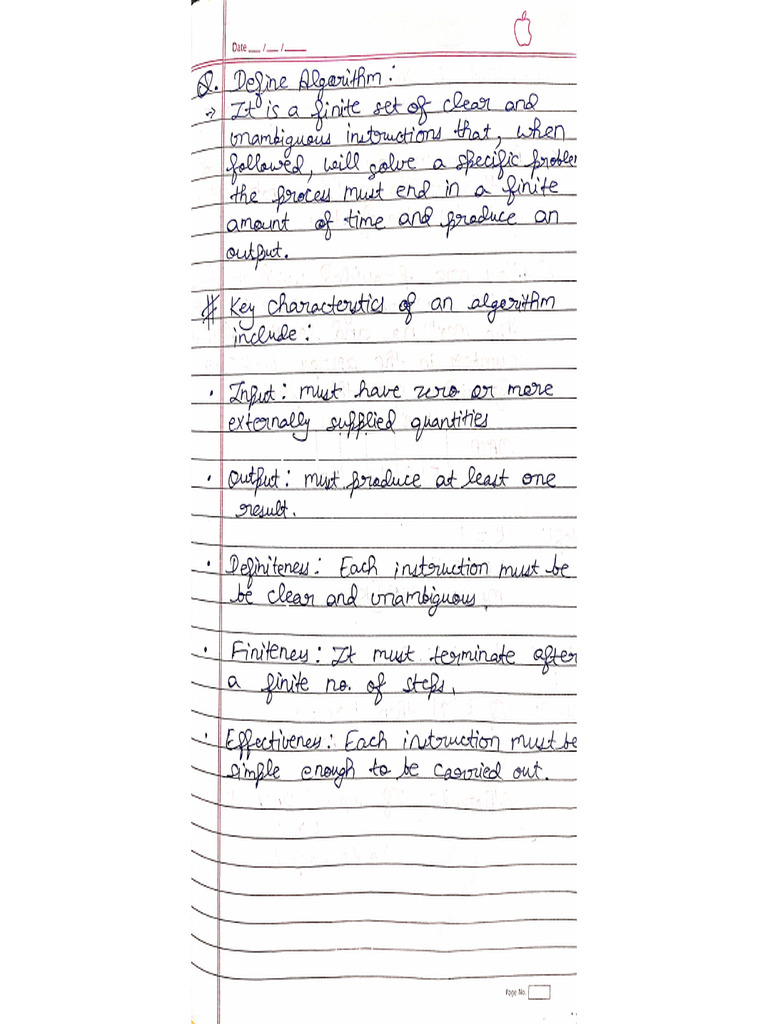 Date __ / __ / ____
Q. Define Algorithm :
→ It is a finite set of clear and
unambiguous instructions that, when
followed, will solve a specific problem
the process must end in a finite
amount of time and produce an
output.
# Key characterstics of an algorithm
include :
• Input : must have zero or more
externally supplied quantities
• Output : must produce at least one
result.
• Definiteness : Each instruction must be
be clear and unambiguous.
• Finiteness : It must terminate after
a finite no. of steps.
• Effectiveness : Each instruction must be
simple enough to be carried out.
Page No.